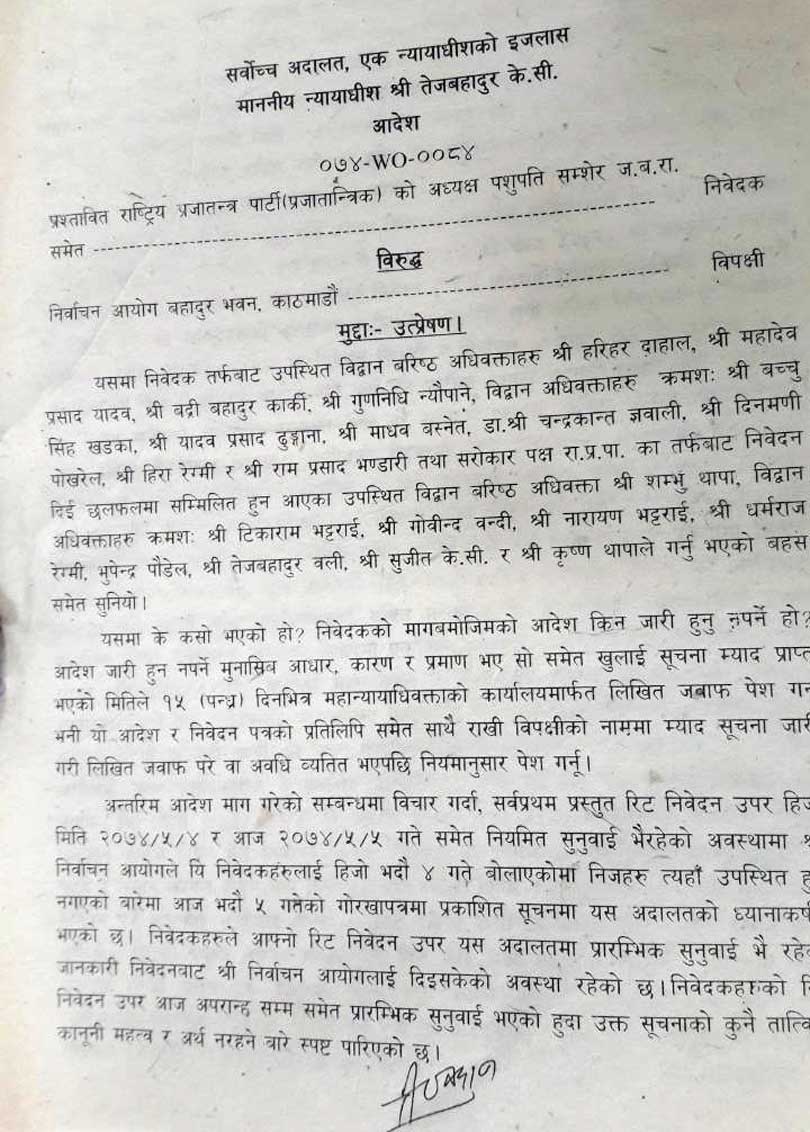 सर्वोच्च अदालत, एक न्यायाधीशको इजलास
माननीय न्यायाधीश श्री तेजबहादुर के.सी.
आदेश
०७४-WO-००८४
प्रस्तावित राष्ट्रिय प्रजातन्त्र पार्टी(प्रजातान्त्रिक) को अध्यक्ष पशुपति सम्शेर ज.ब.रा.
समेत ------------------------------------------------ निवेदक
विरुद्ध
निर्वाचन आयोग बहादुर भवन, काठमाडौं ------------------------------ विपक्षी
मुद्दाः- उत्प्रेषण।
यसमा निवेदक तर्फबाट उपस्थित विद्वान बरिष्ठ अधिवक्ताहरु श्री हरिहर दाहाल, श्री महादेव
प्रसाद यादव, श्री बद्री बहादुर कार्की, श्री गुणनिधि न्यौपाने, विद्वान अधिवक्ताहरु क्रमशः श्री बच्चु
सिंह खडका, श्री यादव प्रसाद ढुङ्गाना, श्री माधव बस्नेत, डा.श्री चन्द्रकान्त ज्ञवाली, श्री दिनमणी
पोखरेल, श्री हिरा रेग्मी र श्री राम प्रसाद भण्डारी तथा सरोकार पक्ष रा.प्र.पा. का तर्फबाट निवेदन
दिई छलफलमा सम्मिलित हुन आएका उपस्थित विद्वान बरिष्ठ अधिवक्ता श्री शम्भु थापा, विद्वान
अधिवक्ताहरु क्रमशः श्री टिकाराम भट्टराई, श्री गोवीन्द वन्दी, श्री नारायण भट्टराई, श्री धर्मराज
रेग्मी, भुपेन्द्र पौडेल, श्री तेजबहादुर वली, श्री सुजीत के.सी. र श्री कृष्ण थापाले गर्नु भएको बहस
समेत सुनियो।
यसमा के कसो भएको हो? निवेदकको मागबमोजिमको आदेश किन जारी हुनु नपर्ने हो?
आदेश जारी हुन नपर्ने मुनासिब आधार, कारण र प्रमाण भए सो समेत खुलाई सूचना म्याद प्राप्त
भएको मितिले १५ (पन्ध्र) दिनभित्र महान्यायाधिवक्ताको कार्यालयमार्फत लिखित जवाफ पेश गर्नु
भनी यो आदेश र निवेदन पत्रको प्रतिलिपि समेत साथै राखी विपक्षीको नाममा म्याद सूचना जारी
गरी लिखित जवाफ परे वा अवधि व्यतित भएपछि नियमानुसार पेश गर्नू।
अन्तरिम आदेश माग गरेको सम्बन्धमा विचार गर्दा, सर्वप्रथम प्रस्तुत रिट निवेदन उपर हिजो
मिति २०७४/५/४ र आज २०७४/५/५ गते समेत नियमित सुनुवाई भैरहेको अवस्थामा
निर्वाचन आयोगले यि निवेदकहरुलाई हिजो भदौ ४ गते बोलाएकोमा निजहरु त्यहाँ उपस्थित
नगएको बारेमा आज भदौ ५ गतेको गोरखापत्रमा प्रकाशित सूचनामा यस अदालतको ध्यानाकर्ष
भएको छ। निवेदकहरुले आफ्नो रिट निवेदन उपर यस अदालतमा प्रारम्भिक सुनुवाई भै रहे
जानकारी निवेदनबाट श्री निर्वाचन आयोगलाई दिइसकेको अवस्था रहेको छ। निवेदकहरुको
निवेदन उपर आज अपरान्ह सम्म समेत प्रारम्भिक सुनुवाई भएको हुदा उक्त सूचनाको कुनै तात्वि
कानूनी महत्व र अर्थ नरहने बारे स्पष्ट पारिएको छ।